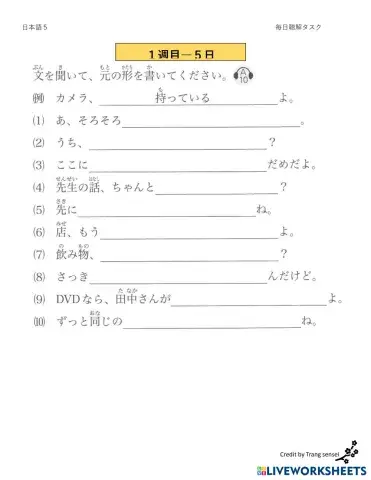 日本語５ 毎日聴解タスク
１週目―５日
文を聞いて、元の形を書いてください。 A 10
例 カメラ、 持っている よ。
(1) あ、そろそろ 。
(2) うち、 ?
(3) ここに だめだよ。
(4) 先生の話、ちゃんと ?
(5) 先に ね。
(6) 店、もう よ。
(7) 飲み物、 ?
(8) さっき んだけど。
(9) DVDなら、田中さんが よ。
(10) ずっと同じの ね。
Credit by Trang sensei
LIVEWORKSHEETS